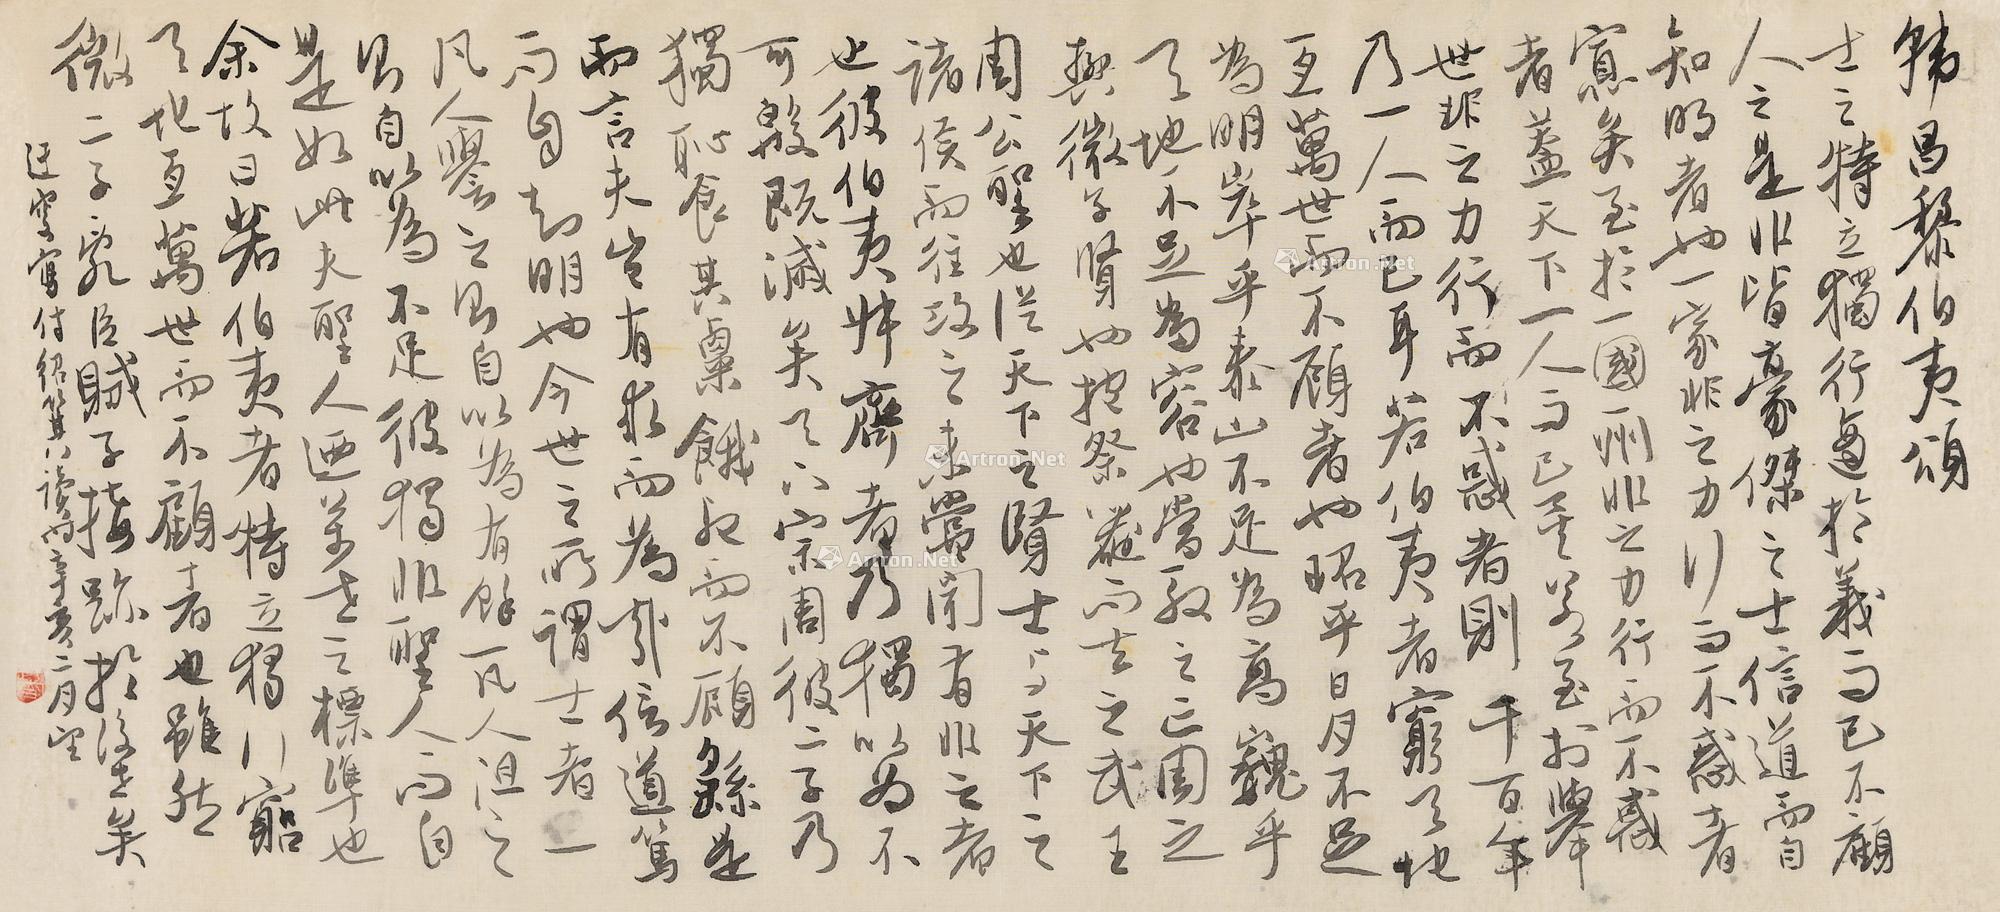 韓昌黎伯夷頌
士之特立獨行適於義而已不顧
人之是非皆豪傑之士信道而自
知明者也一家非之力行而不惑者
寡矣至於一國一州非之力行而不惑
者蓋天下一人而已矣若至於舉
世非之力行而不惑者則千百年
乃一人而已耳若伯夷者窮天地
亙萬世而不顧者也昭乎日月不足
為明崒乎泰山不足為高巍乎
天地不足為容也當殷之亡周之
興微子賢也抱祭器而去之武王
周公聖也從天下之賢士與天下之
諸侯而往攻之未嘗聞有非之者
也彼伯夷叔齊者乃獨以為不
可殷既滅矣天下宗周彼二子乃
獨恥食其粟餓死而不顧繇是
而言夫豈有求而為哉信道篤
而自知明也今世之所謂士者一
凡人譽之則自以為有餘一凡人沮之
則自以為不足彼獨非聖人而自
是如此夫聖人迺萬世之標準也
余故曰若伯夷者特立獨行窮
天地亙萬世而不顧者也雖然
微二子亂臣賊子接跡於後世矣
延 寫付紹箕八 辛亥二月望
Artron.Net
Artron.Net
Artron.Net